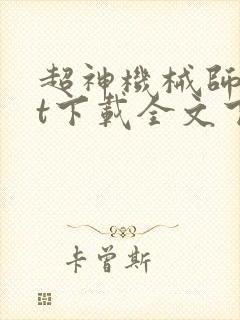 超神機械師
t下載全文
卡曾斯